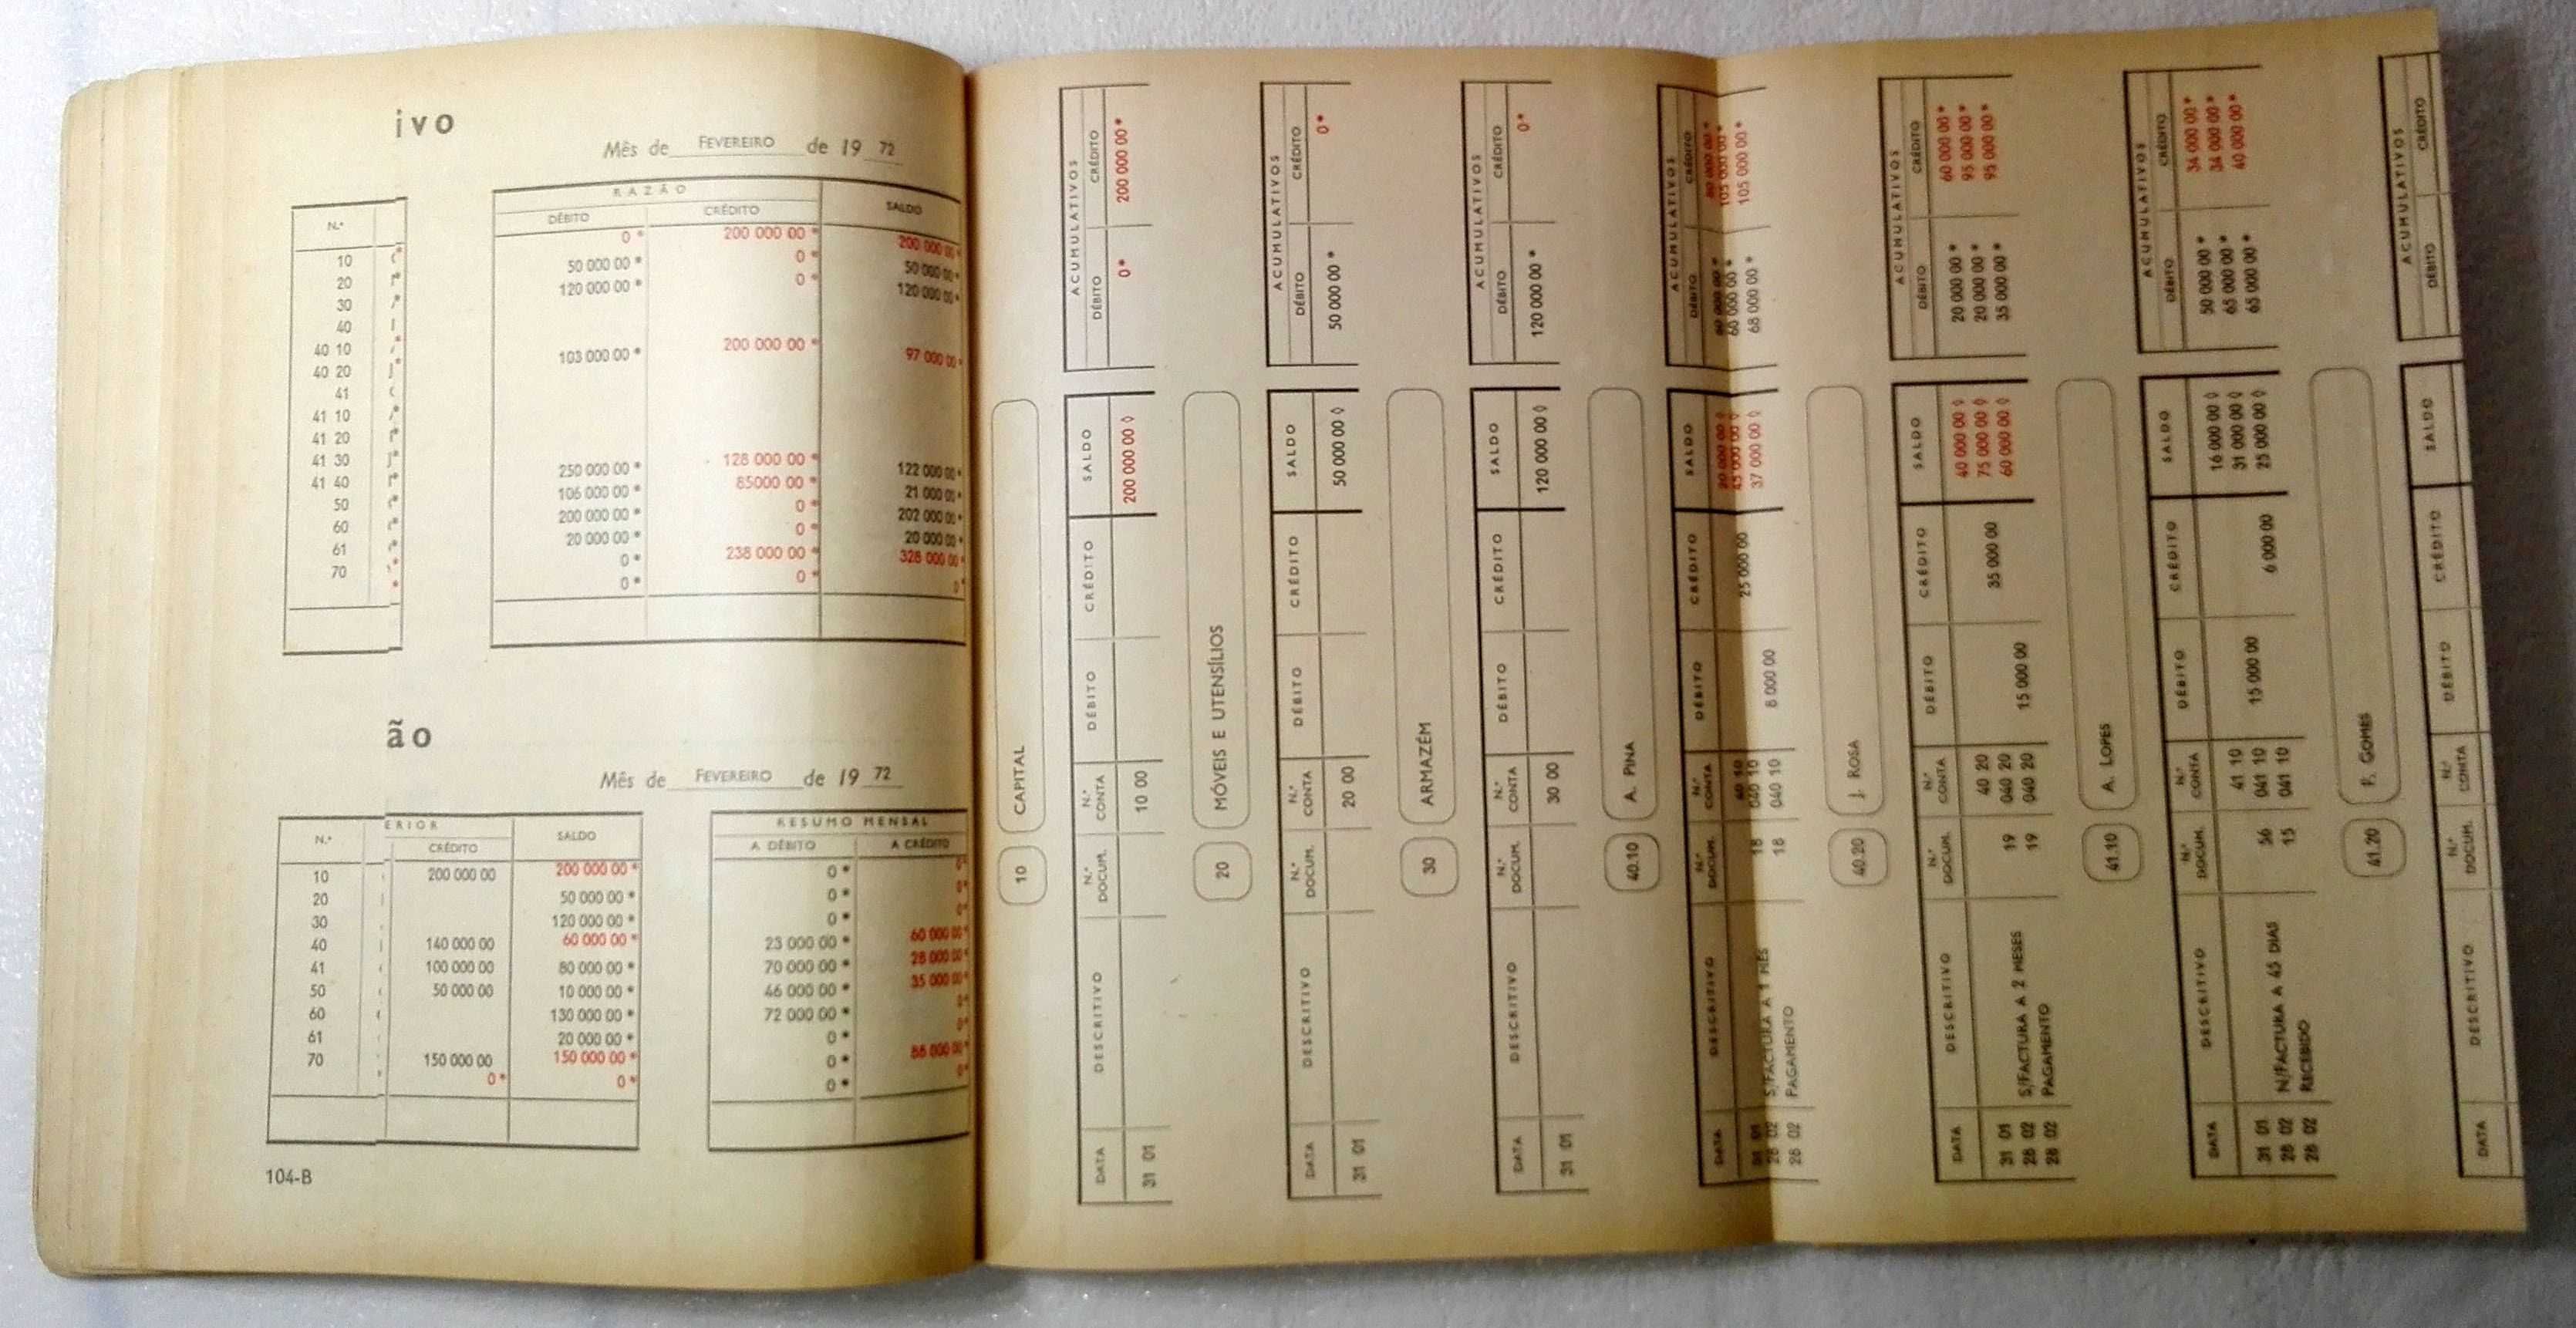 ivo
Mês de FEVEREIRO de 19 72
N.º
10
20
30
40
40 10
40 20
41
41 10
41 20
41 30
41 40
50
60
61
70
RAZÃO
DÉBITO CRÉDITO SALDO
0 * 200 000 00 * 200 000 00 *
50 000 00 * 0 * 50 000 00 *
120 000 00 * 0 * 120 000 00 *
103 000 00 * 200 000 00 * 97 000 00 *
250 000 00 * 128 000 00 * 122 000 00 *
106 000 00 * 85000 00 * 21 000 00 *
200 000 00 * 0 * 202 000 00 *
20 000 00 * 0 * 20 000 00 *
0 * 238 000 00 * 328 000 00 *
0 * 0 * 0 *
ão
Mês de FEVEREIRO de 19 72
N.º ERIOR
CRÉDITO SALDO
10 200 000 00 200 000 00 *
20 50 000 00 *
30 120 000 00 *
40 140 000 00 60 000 00 *
41 100 000 00 80 000 00 *
50 50 000 00 10 000 00 *
60 130 000 00 *
61 20 000 00 *
70 150 000 00 150 000 00 *
0 * 0 *
RESUMO MENSAL
A DÉBITO A CRÉDITO
0 * 0 *
0 * 0 *
0 * 0 *
23 000 00 * 60 000 00 *
70 000 00 * 28 000 00 *
46 000 00 * 35 000 00 *
72 000 00 * 0 *
0 * 0 *
0 * 88 000 00 *
0 * 0 *
104-B
10 CAPITAL
DATA DESCRITIVO N.º DOCUM. N.º CONTA DÉBITO CRÉDITO SALDO ACUMULATIVOS DÉBITO CRÉDITO
31 01 10 00 200 000 00 ◊ 0 * 200 000 00 *
20 MÓVEIS E UTENSÍLIOS
DATA DESCRITIVO N.º DOCUM. N.º CONTA DÉBITO CRÉDITO SALDO ACUMULATIVOS DÉBITO CRÉDITO
31 01 20 00 50 000 00 ◊ 50 000 00 * 0 *
30 ARMAZÉM
DATA DESCRITIVO N.º DOCUM. N.º CONTA DÉBITO CRÉDITO SALDO ACUMULATIVOS DÉBITO CRÉDITO
31 01 30 00 120 000 00 ◊ 120 000 00 * 0 *
40.10 A. PINA
DATA DESCRITIVO N.º DOCUM. N.º CONTA DÉBITO CRÉDITO SALDO ACUMULATIVOS DÉBITO CRÉDITO
31 01 40 10 20 000 00 ◊ 80 000 00 *
28 02 S/FACTURA A 1 MÊS 18 040 10 25 000 00 45 000 00 ◊ 60 000 00 * 105 000 00 *
28 02 PAGAMENTO 18 040 10 8 000 00 37 000 00 ◊ 68 000 00 * 105 000 00 *
40.20 J. ROSA
DATA DESCRITIVO N.º DOCUM. N.º CONTA DÉBITO CRÉDITO SALDO ACUMULATIVOS DÉBITO CRÉDITO
31 01 40 20 40 000 00 ◊ 20 000 00 * 60 000 00 *
28 02 S/FACTURA A 2 MESES 19 040 20 35 000 00 75 000 00 ◊ 20 000 00 * 95 000 00 *
28 02 PAGAMENTO 19 040 20 15 000 00 60 000 00 ◊ 35 000 00 * 95 000 00 *
41.10 A. LOPES
DATA DESCRITIVO N.º DOCUM. N.º CONTA DÉBITO CRÉDITO SALDO ACUMULATIVOS DÉBITO CRÉDITO
31 01 41 10 16 000 00 ◊ 50 000 00 * 34 000 00 *
28 02 N/FACTURA A 45 DIAS 56 041 10 15 000 00 31 000 00 ◊ 65 000 00 * 34 000 00 *
28 02 RECEBIDO 15 041 10 6 000 00 25 000 00 ◊ 65 000 00 * 40 000 00 *
41.20 P. GOMES
DATA DESCRITIVO N.º DOCUM. N.º CONTA DÉBITO CRÉDITO SALDO ACUMULATIVOS DÉBITO CRÉDITO